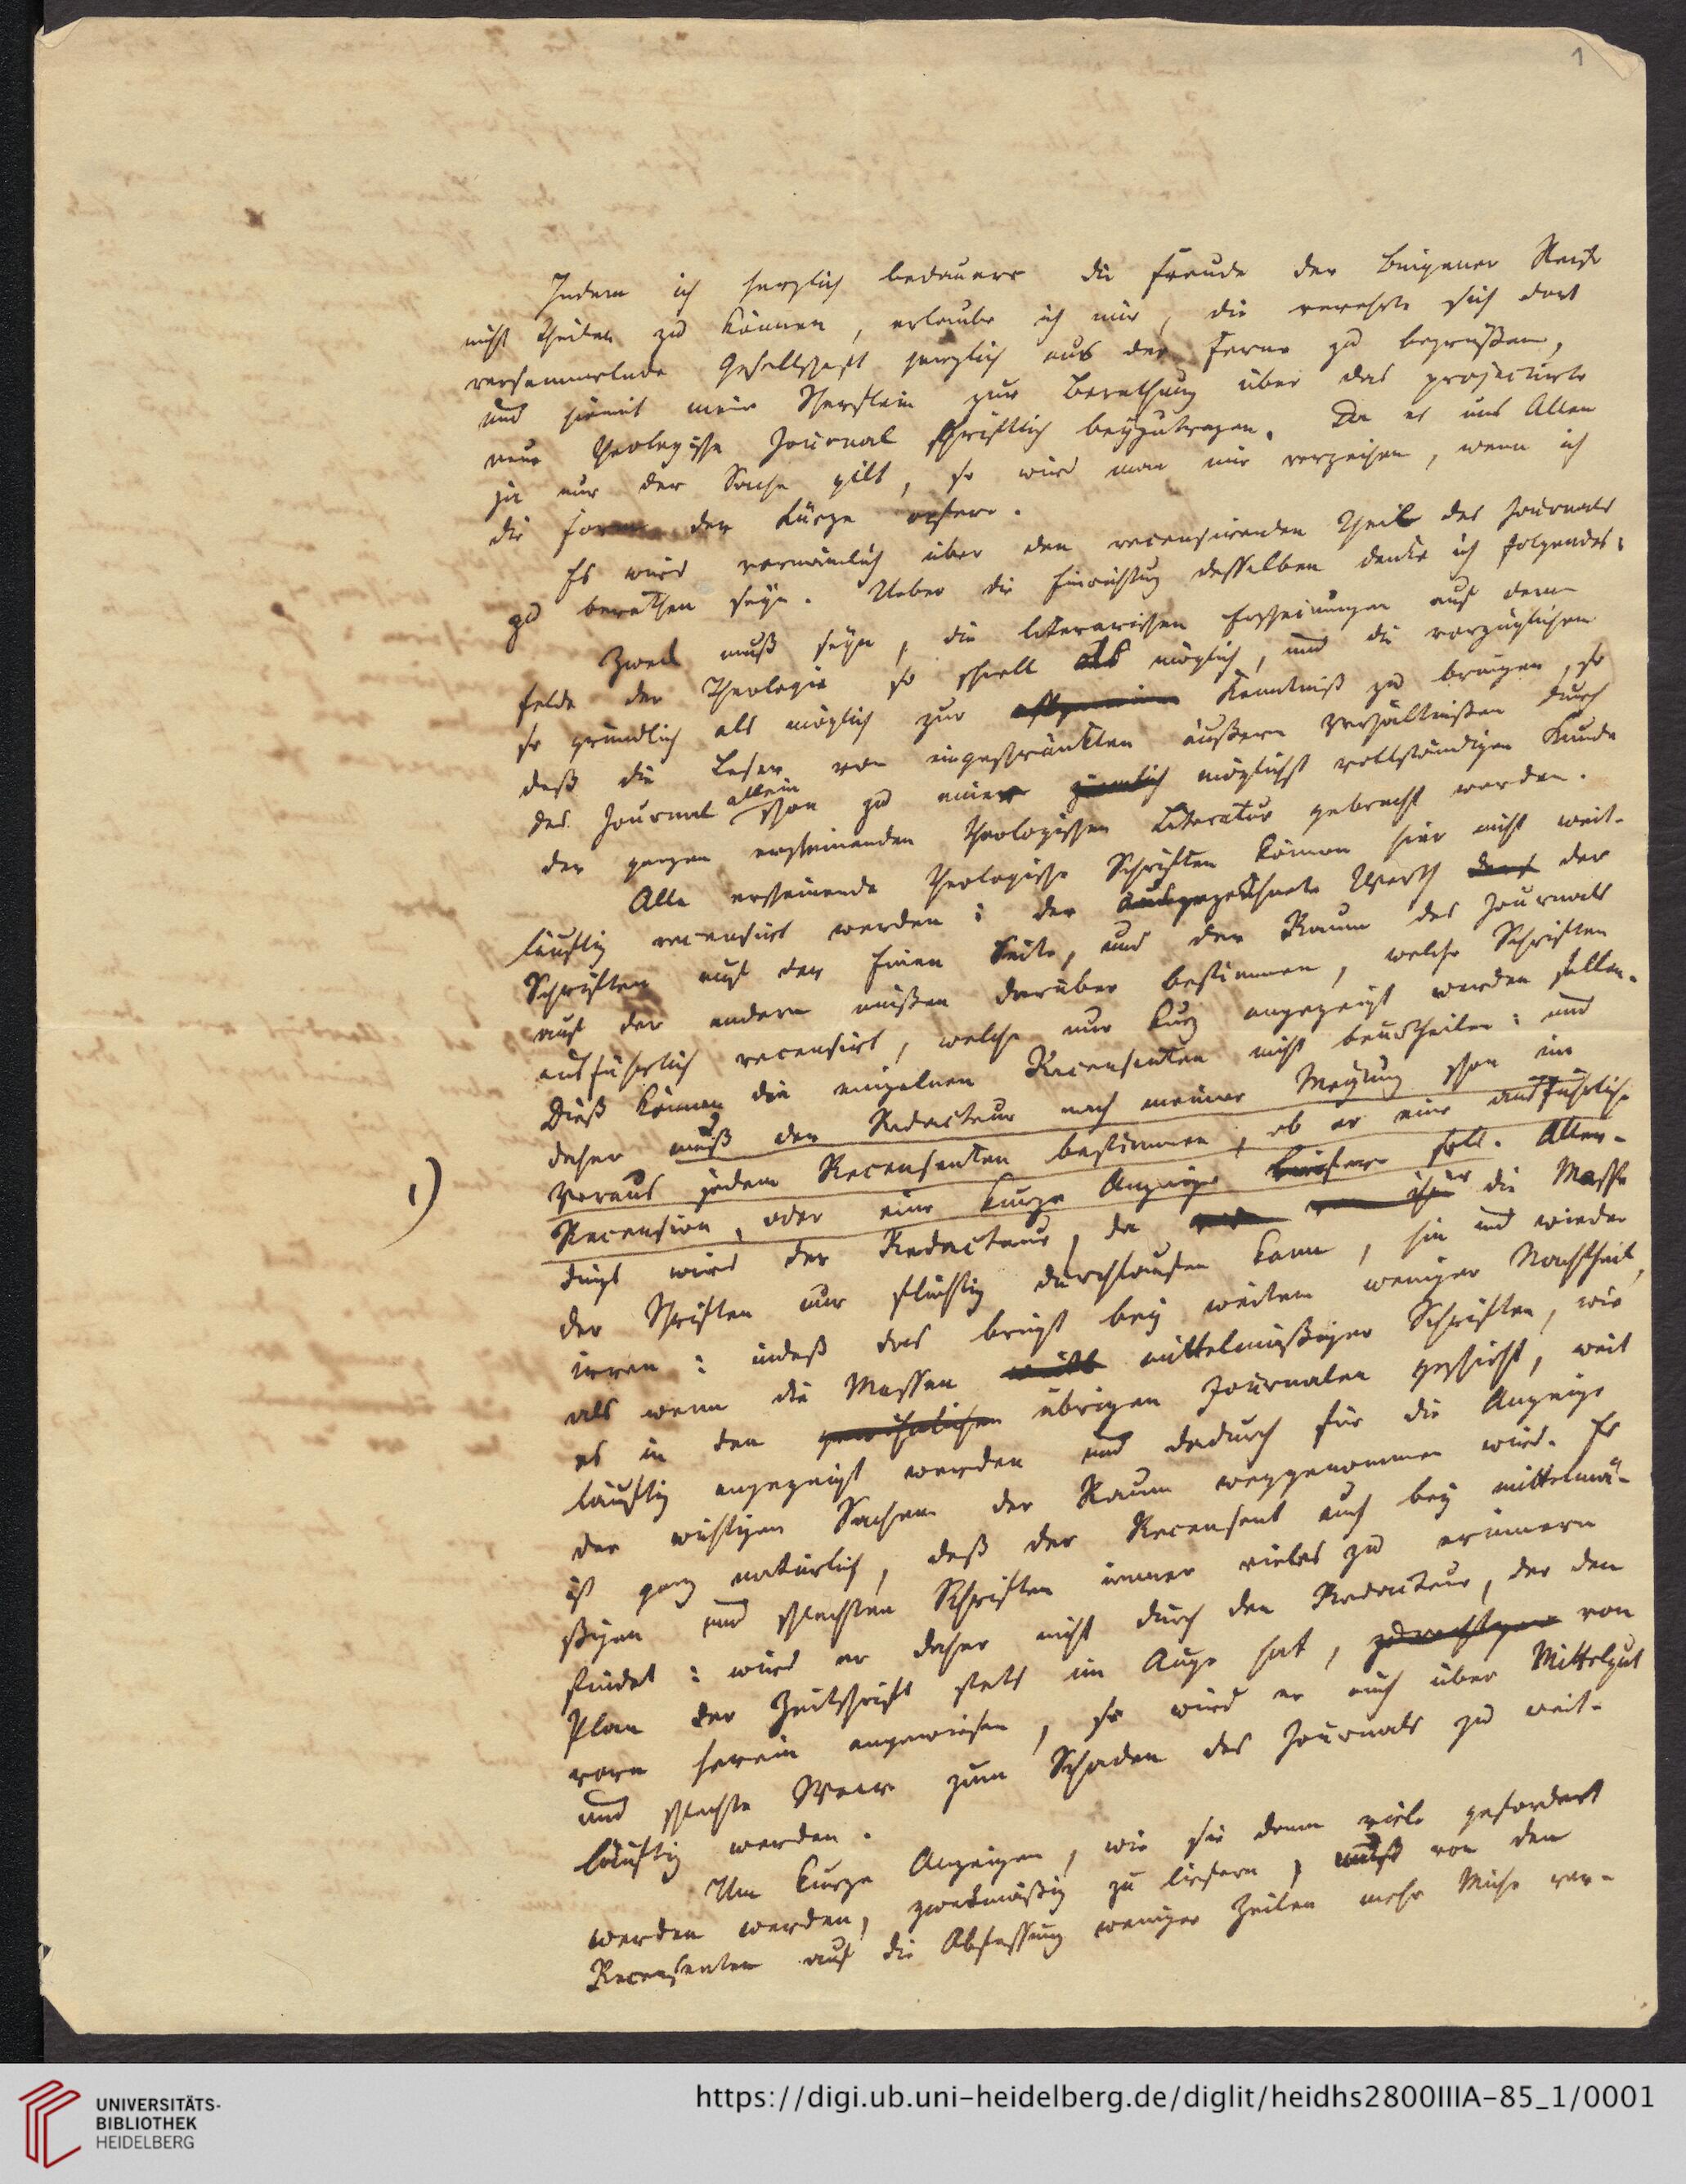 1
Indem ich herzlich bedauere die Freude der Bingener Reise
nicht theilen zu können, erlaube ich mir, die verehrte sich dort
versammelnde Gesellschaft herzlich aus der Ferne zu begrüßen,
und hiemit mein Scherflein zur Berathung über das projectirte
neue theologische Journal schriftlich beyzutragen. Da es uns Allen
ja nur der Sache gilt, so wird man mir verzeihen, wenn ich
die Form der Kürze opfere.
Es wird vornämlich über den recensirenden Theil des Journals
zu berathen seyn. Ueber die Einrichtung desselben denke ich folgendes:
Zweck muß seyn, die literarischen Erscheinungen auf dem
Felde der Theologie so schnell als möglich, und die vorzüglichen
so gründlich als möglich zur allgemeinen Kenntniß zu bringen, so
daß die Leser von eingeschränkten äußern Verhältnißen durch
das Journal allein schon zu einer ziemlich möglichst vollständigen Kunde
der ganzen erscheinenden theologischen Literatur gebracht werden.
Alle erscheinende theologische Schriften können hier nicht weit-
läuftig recensirt werden: der ausgezeichnete Werth der
Schriften auf der Einen Seite, und der Raum des Journals
auf der andern müßen darüber bestimmen, welche Schriften
ausführlich recensirt, welche nur kurz angezeigt werden sollen.
Dieß können die einzelnen Recensenten nicht beurtheilen: und
daher muß der Redacteur nach meiner Meynung schon im
Voraus jedem Recensenten bestimmen, ob er eine ausführliche
1)
Recension, oder eine kurze Anzeige liefern soll. Aller-
dings wird der Redacteur, da er die Masse
der Schriften nur flüchtig durchlaufen kann, hin und wieder
irren: indeß das bringt bey weitem weniger Nachtheil,
als wenn die Massen mittelmäßiger Schriften, wie
es in den gewöhnlichen übrigen Journalen geschieht, weit
läuftig angezeigt werden und dadurch für die Anzeige
der wichtigen Sachen der Raum weggenommen wird. Es
ist ganz natürlich, daß der Recensent auch bey mittelmä-
ßigen und schlechten Schriften immer vieles zu erinnern
findet: wird er daher nicht durch den Redacteur, der den
Plan der Zeitschrift stets im Auge hat, von
vorn herein angewiesen, so wird er auch über Mittelgut
und schlechte Waare zum Schaden des Journals zu weit-
läuftig werden.
Um kurze Anzeigen, wie sie denn viele gefordert
werden werden, zweckmäßig zu liefern, muß von den
Recensenten auf die Abfassung weniger Zeilen mehr Mühe ver-
UNIVERSITÄTS-
BIBLIOTHEK
HEIDELBERG
https://digi.ub.uni-heidelberg.de/diglit/heidhs2800IIIA-85_1/0001